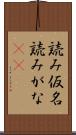 読み仮名
読みがな